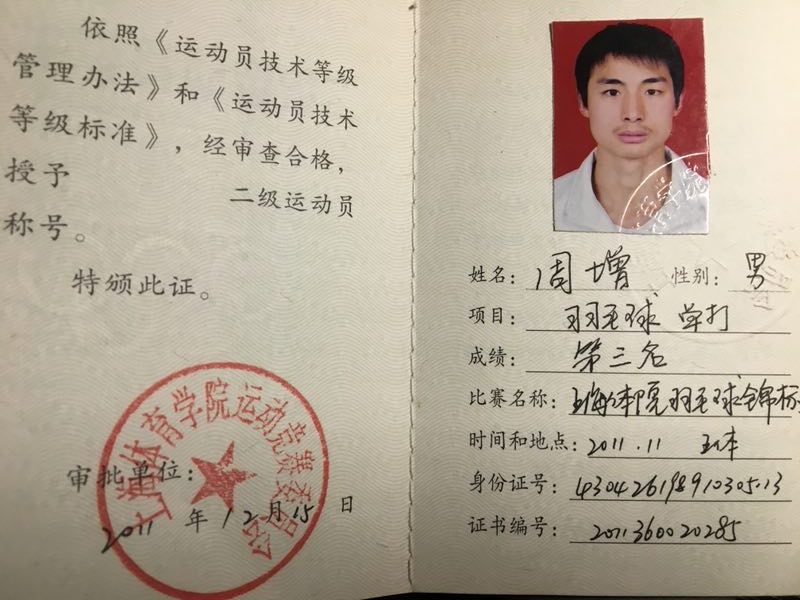 依照《运动员技术等级
管理办法》和《运动员技术
等级标准》，经审查合格，
授予 二级运动员
称号。
特颁此证。
上海体育学院运动竞赛委员会
审批单位：
2011 年 12 月 15 日
姓名：周增 性别：男
项目：羽毛球 单打
成绩：第三名
比赛名称：上海体院羽毛球锦标
时间和地点：2011.11
身份证号：
证书编号：2011360020285